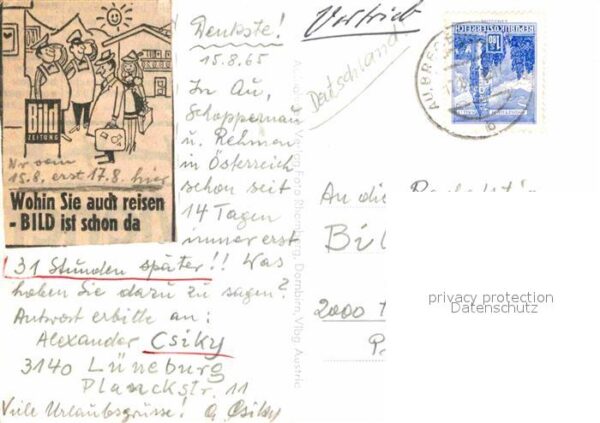 Bild
ZEITUNG
Nr vom
15.8. erst 17.8. hier
Wohin Sie auch reisen
- BILD ist schon da
Denkste!
15.8.65
In Au,
Schoppernau
u. Rehmen
in Österreich
schon seit
14 Tagen
immer erst
31 Stunden später!! Was
haben Sie dazu zu sagen?
Antwort erbitte an:
Alexander Csiky
3140 Lüneburg
Planckstr. 11
Viele Urlaubsgrüsse! A. Csiky
Vertrieb
Deutschland
REPUBLIK ÖSTERREICH
AU, BREG
Foto Rhomberg, Dornbirn, Vlbg. Austria
An die
Bil
2000
privacy protection
Datenschutz